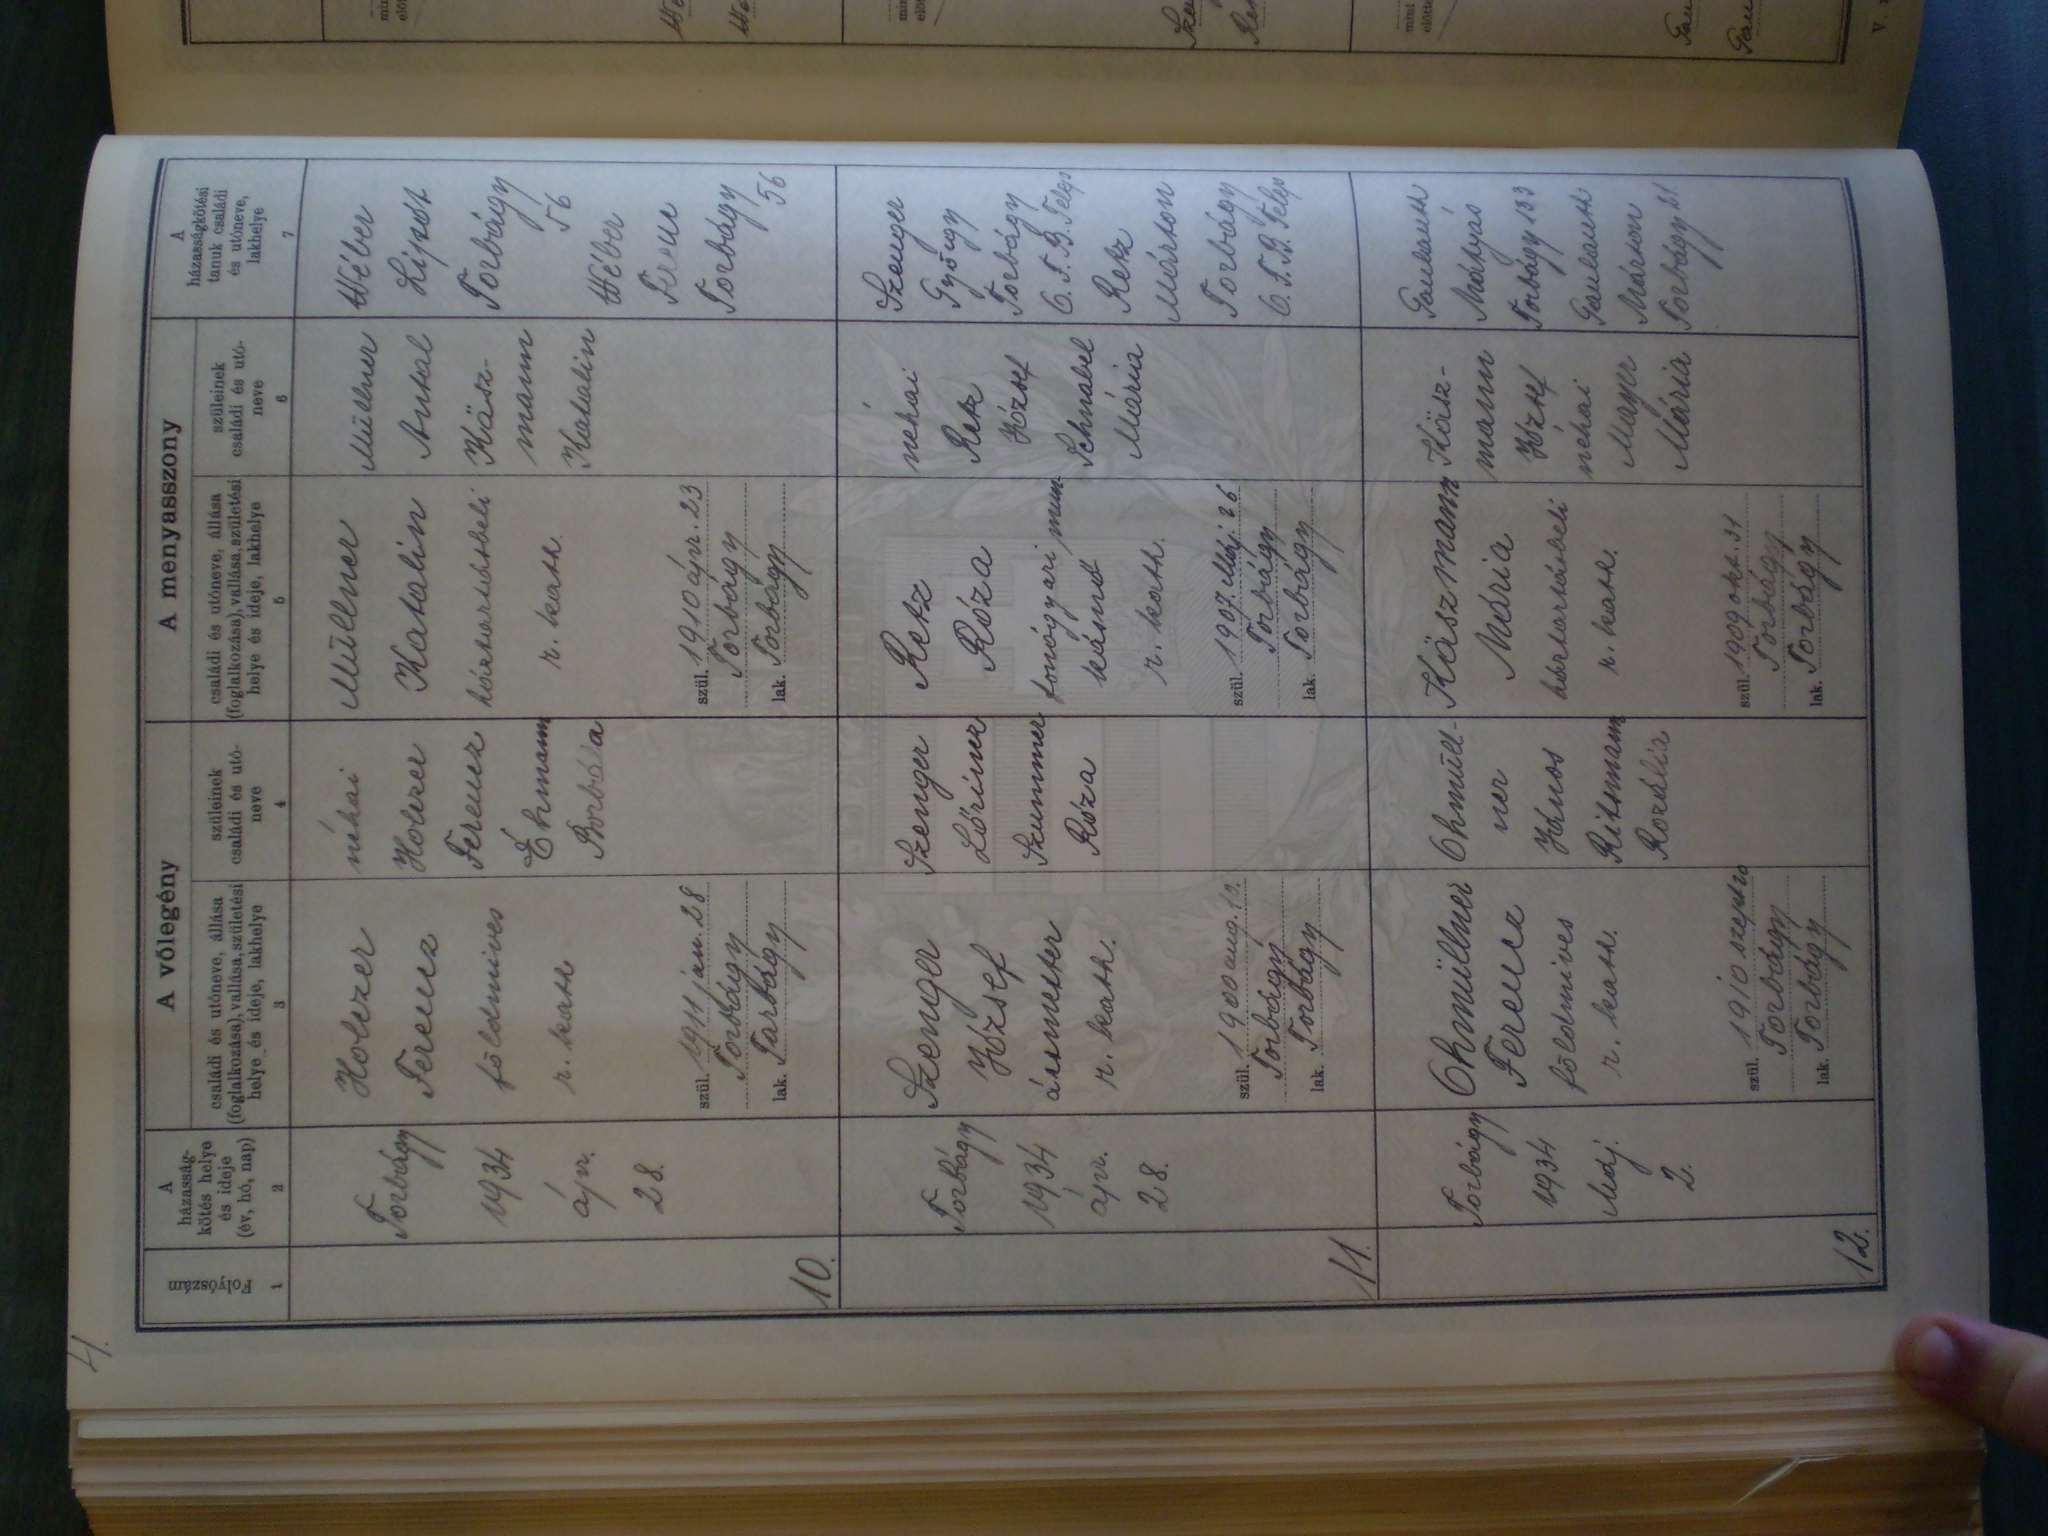 4.
Folyószám
1
A
házasság-
kötés helye
és ideje
(év, hó, nap)
2
A vőlegény
családi és utóneve, állása
(foglalkozása), vallása, születési
helye és ideje, lakhelye
3
szüleinek
családi és utó-
neve
4
A menyasszony
családi és utóneve, állása
(foglalkozása), vallása, születési
helye és ideje, lakhelye
5
szüleinek
családi és utó-
neve
6
A
házasságkötési
tanuk családi
és utóneve,
lakhelye
7
10.
Torbágy
1934
ápr.
28.
Holczer
Ferencz
földmives
r. kath
szül. 1911 jan. 28
Torbágy
lak. Torbágy
néhai
Holczer
Ferencz
Ehmann
Borbála
Müllner
Katalin
háztartásbeli
r. kath.
szül. 1910 ápr. 23
Torbágy
lak. Torbágy
Müllner
Antal
Kász-
mann
Katalin
Wéber
Lipót
Torbágy
56
Wéber
Torbágy
56
11.
Torbágy
1934
ápr.
28.
Szenger
József
r. kath.
szül. 1900 aug. 13.
Torbágy
lak. Torbágy
Szenger
Lőrincz
Szummer
Róza
Retz
Róza
fonógyári mun
kásnő
r. kath.
szül. 1907. Máj. 26
Torbágy
lak. Torbágy
néhai
Retz
József
Schnabel
Mária
Szenger
György
Torbágy
C.F.B. Telep
Retz
Márton
Torbágy
C.F.B. Telep
12.
Torbágy
1934
Máj.
2.
Ohmüllner
Ferencz
földmives
r. kath.
szül. 1910 szept
Torbágy
lak. Torbágy
Ohmüll-
ner
János
Ritzmann
Rozália
Kászmann
Mária
háztartásbeli
r. kath.
szül. 1909 okt. 31
Torbágy
lak. Torbágy
Kász-
mann
József
néhai
Mayer
Mária
Mátyás
Torbágy 133
Márton
Torbágy 21.